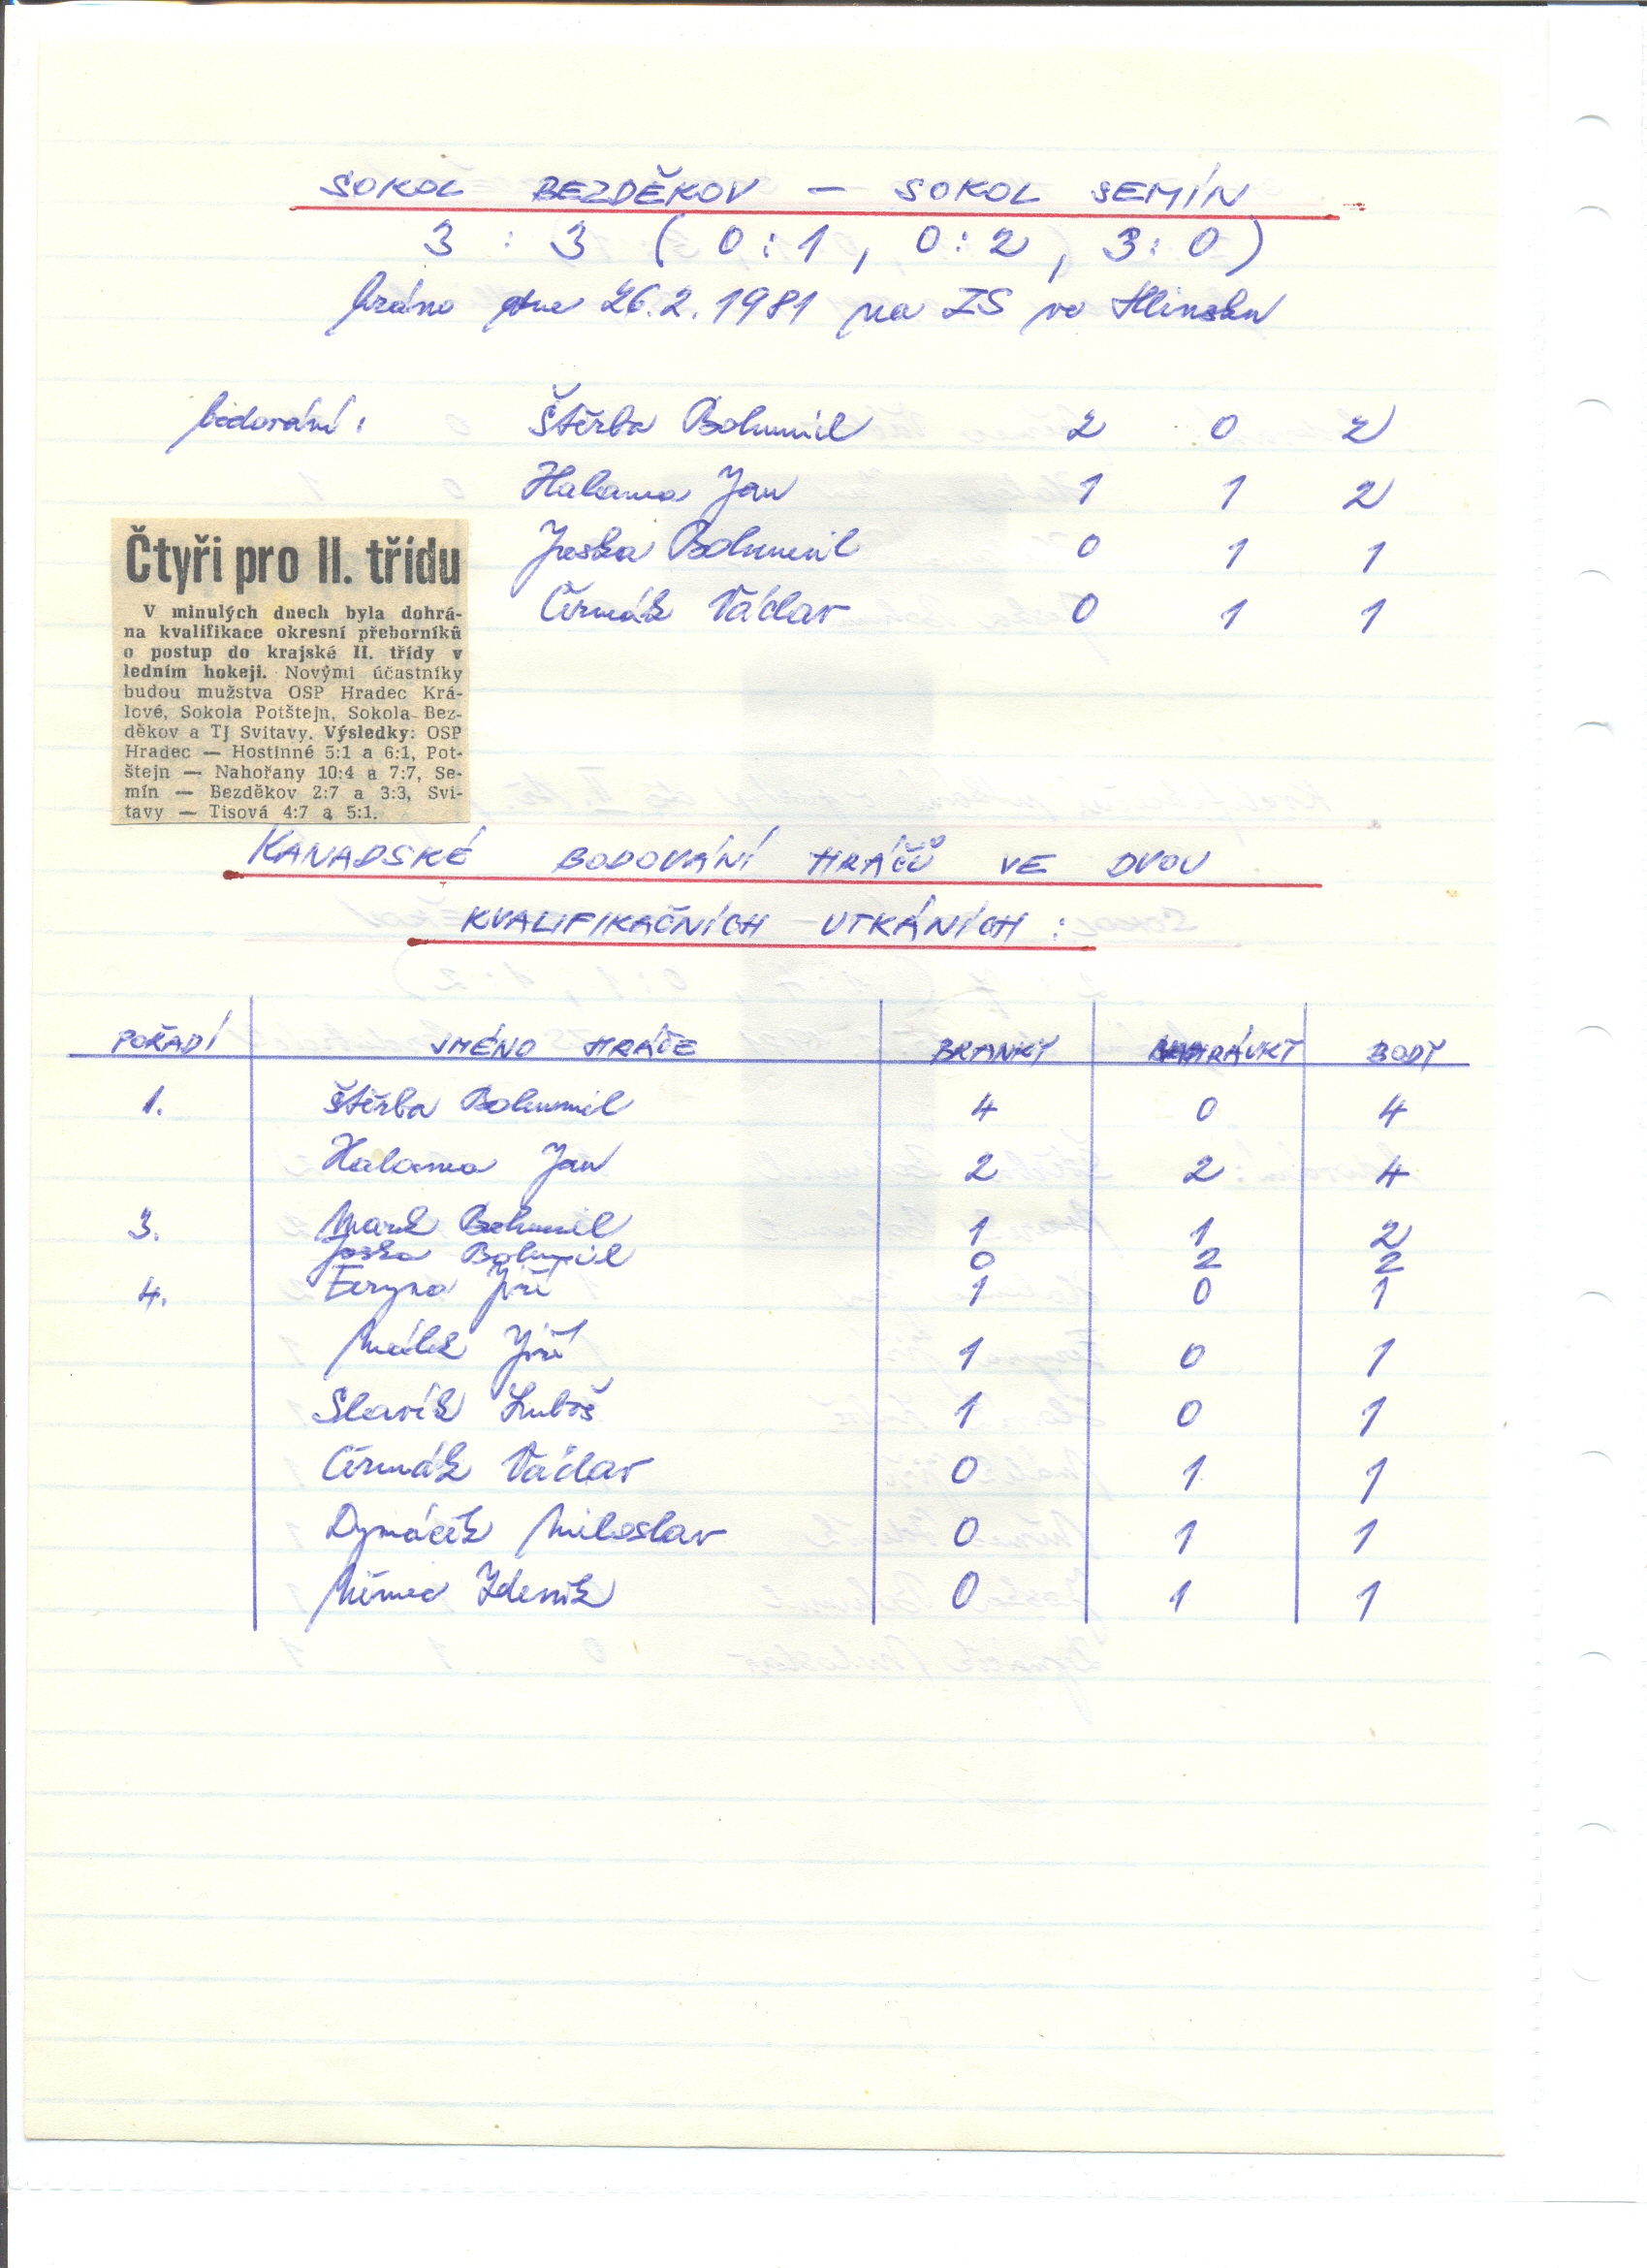 SOKOL BEZDĚKOV — SOKOL SEMÍN
3 : 3 ( 0:1 , 0:2 , 3:0 )
hráno dne 26.2.1981 na ZS ve Hlinsku
bodování : Štěrba Bohumil 2 0 2
Halama Jan 1 1 2
Joska Bohumil 0 1 1
Čermák Václav 0 1 1
Čtyři pro II. třídu
V minulých dnech byla dohrá-
na kvalifikace okresní přeborníků
o postup do krajské II. třídy v
ledním hokeji. Novými účastníky
budou mužstva OSP Hradec Krá-
lové, Sokola Potštejn, Sokola Bez-
děkov a TJ Svitavy. Výsledky: OSP
Hradec — Hostinné 5:1 a 6:1, Pot-
štejn — Nahořany 10:4 a 7:7, Se-
mín — Bezděkov 2:7 a 3:3, Svi-
tavy — Tisová 4:7 a 5:1.
KANADSKÉ BODOVÁNÍ HRÁČŮ VE DVOU
KVALIFIKAČNÍCH UTKÁNÍCH :
POŘADÍ JMÉNO HRÁČE BRANKY NAHRÁVKY BODY
1. Štěrba Bohumil 4 0 4
Halama Jan 2 2 4
3. Mareš Bohumil 1 1 2
Joska Bohumil 0 2 2
4. Feryna Jiří 1 0 1
Málek Jiří 1 0 1
Slavík Luboš 1 0 1
Čermák Václav 0 1 1
Dymáček Miloslav 0 1 1
Němec Zdeněk 0 1 1